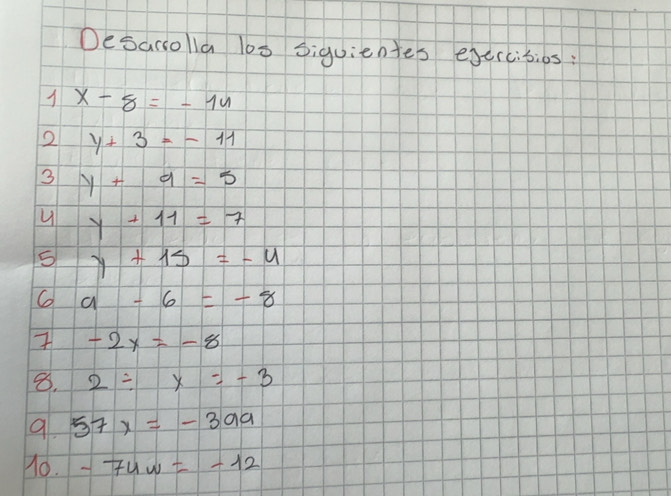 Desarrolla los siguientes ejercisios:
1 x - 8 = - 14
2 y + 3 = - 11
3 y + 9 = 5
4 y + 11 = 7
5 y + 15 = - 4
6 a - 6 = - 8
7 - 2x = - 8
8. 2 ÷ x = - 3
9. 57x = - 399
10. - 74w = - 12